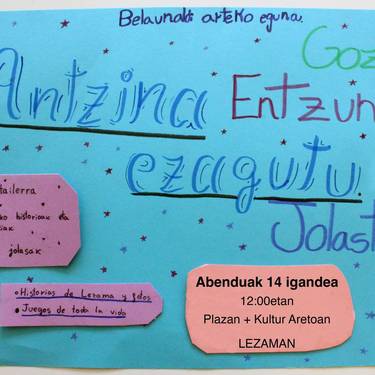 Belaunaldi arteko eguna.
Goz
Antzina Entzun
ezagutu.
Jolast
tailerra
ko historioak eta
jolasak
• Historias de Lezama y
• Juegos de toda la vida
Abenduak 14 igandea
12:00etan
Plazan + Kultur Aretoan
LEZAMAN